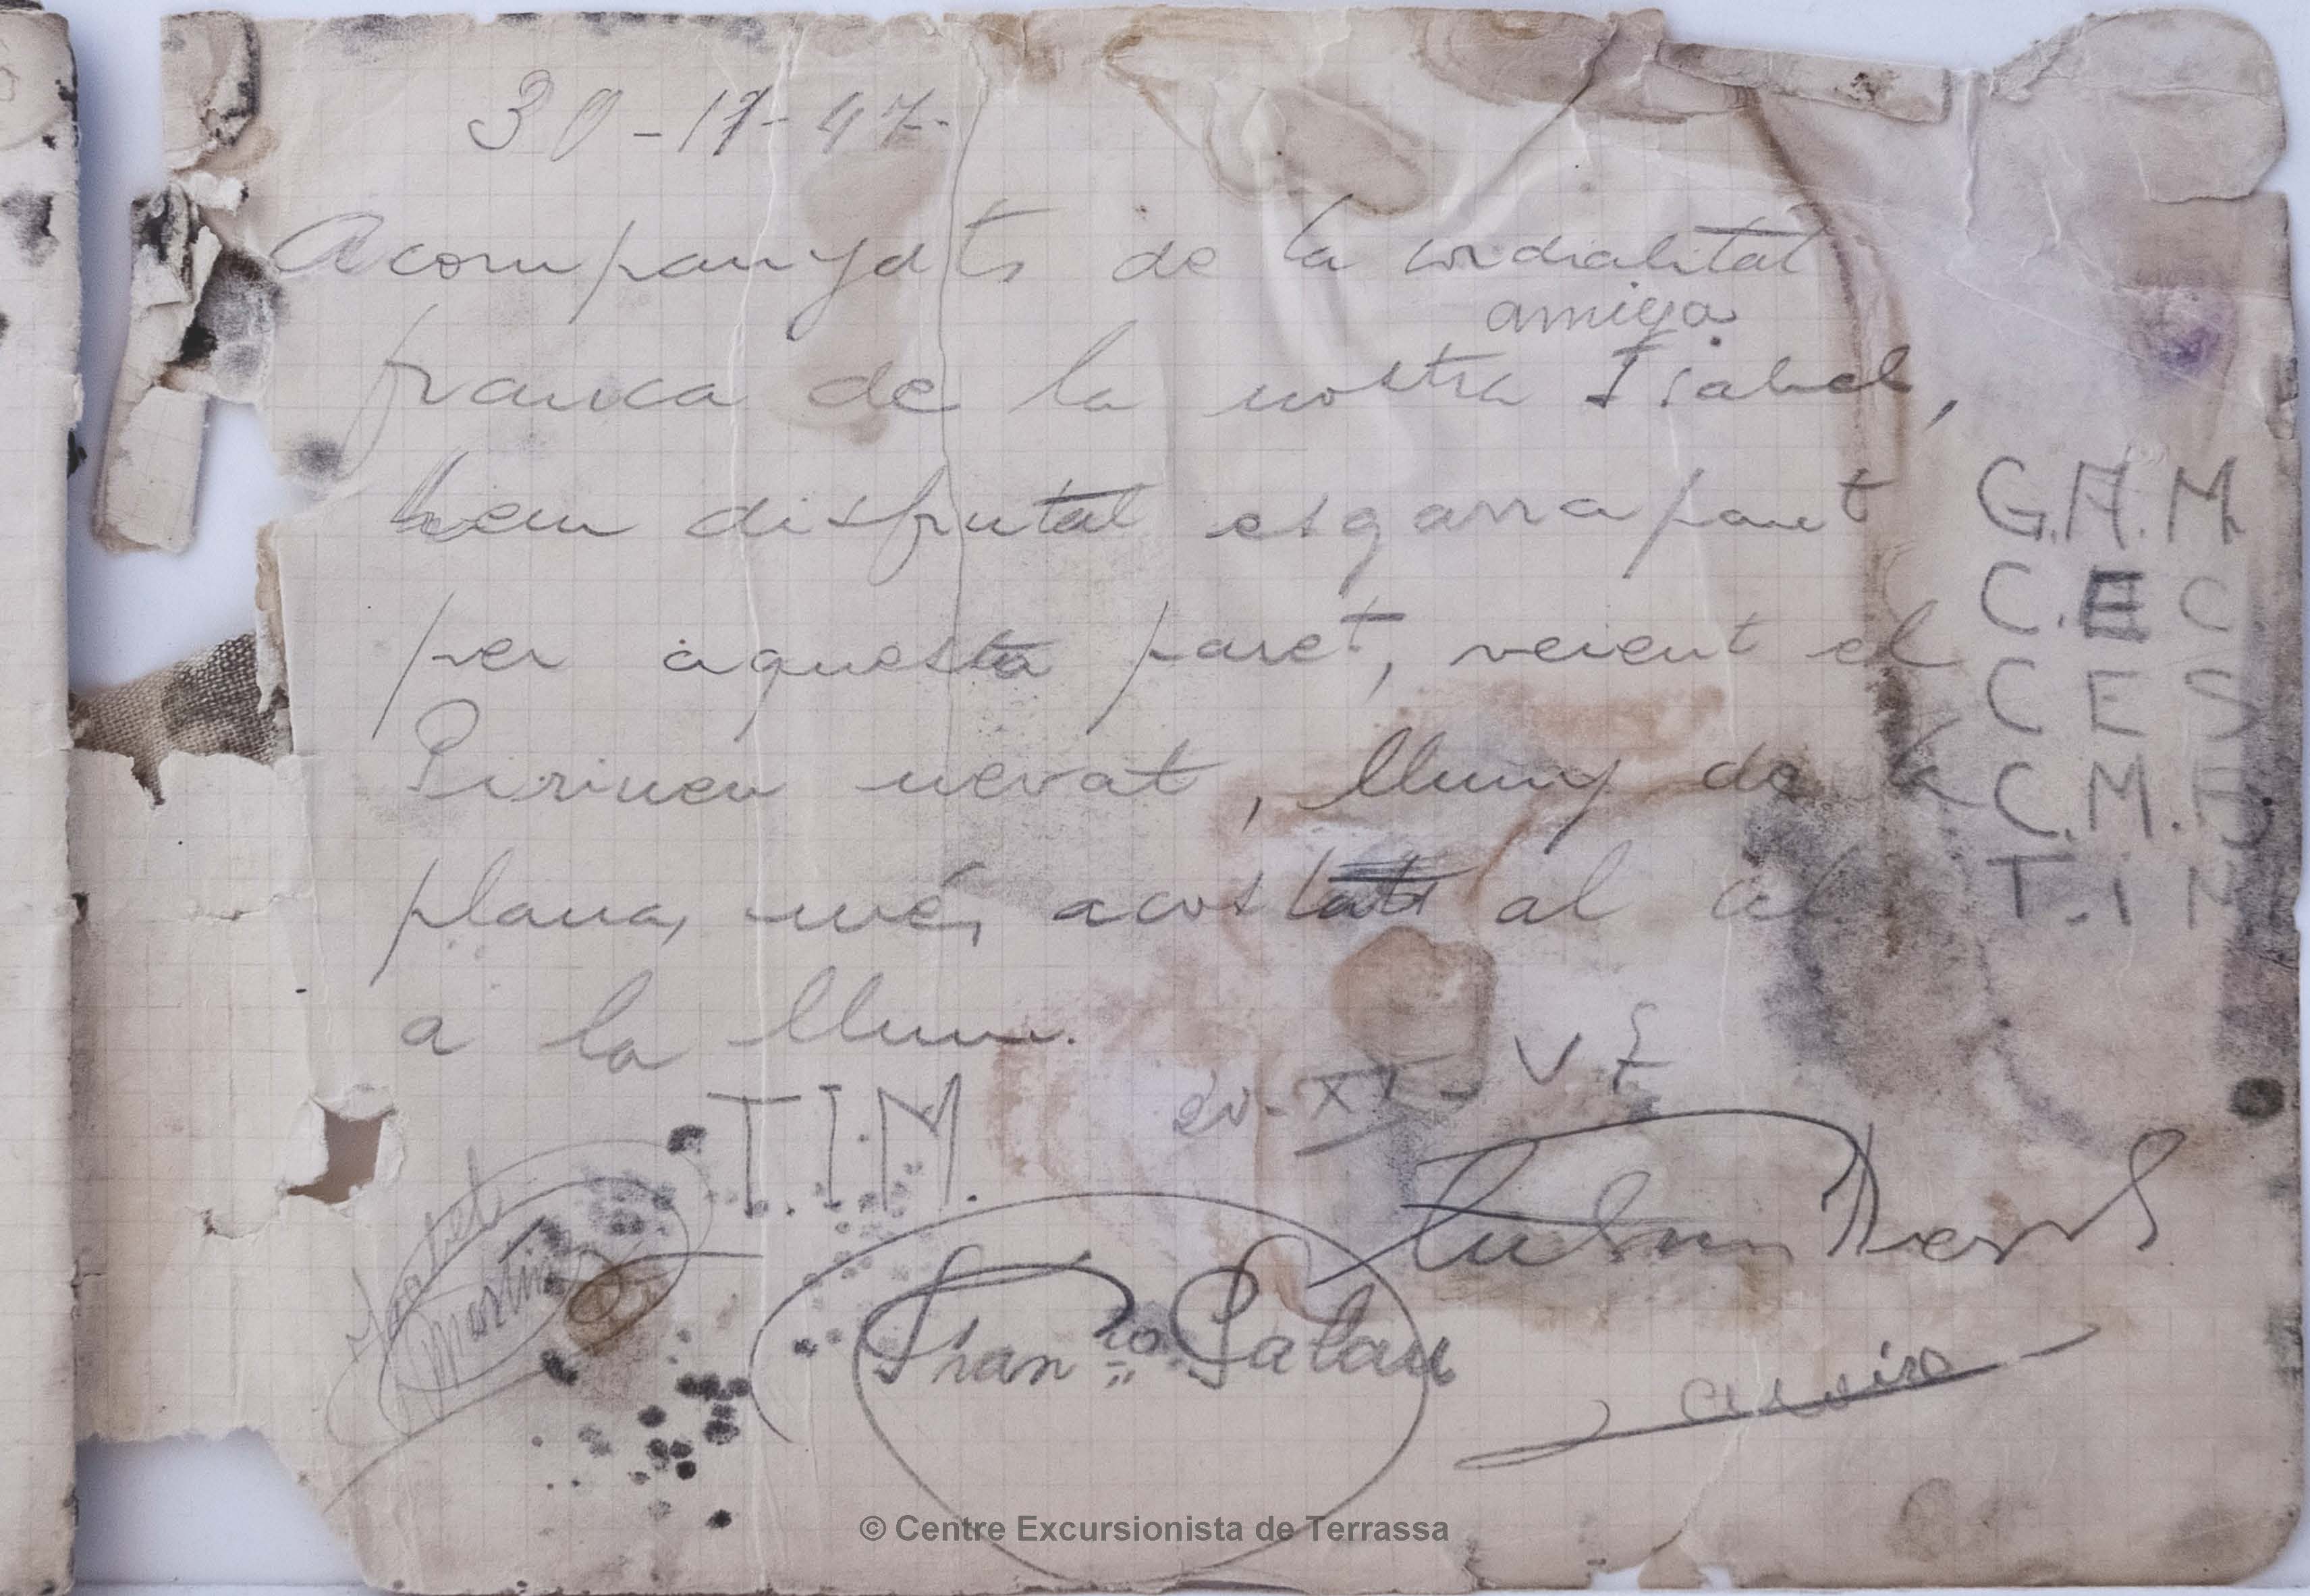 30-11-47.
Acompanyats de la cordialitat
amiga
franca de la nostra Isabel,
hem disfrutat esgarrapant
per aquesta paret, veient el
Pirineu nevat, lluny de la
plana, més acostats al cel
a la llum.
G.A.M.
C.E C
C E S
C.M.B
T.I M
T.I.M.
Isabel
Martin
Fran.co Palau
© Centre Excursionista de Terrassa